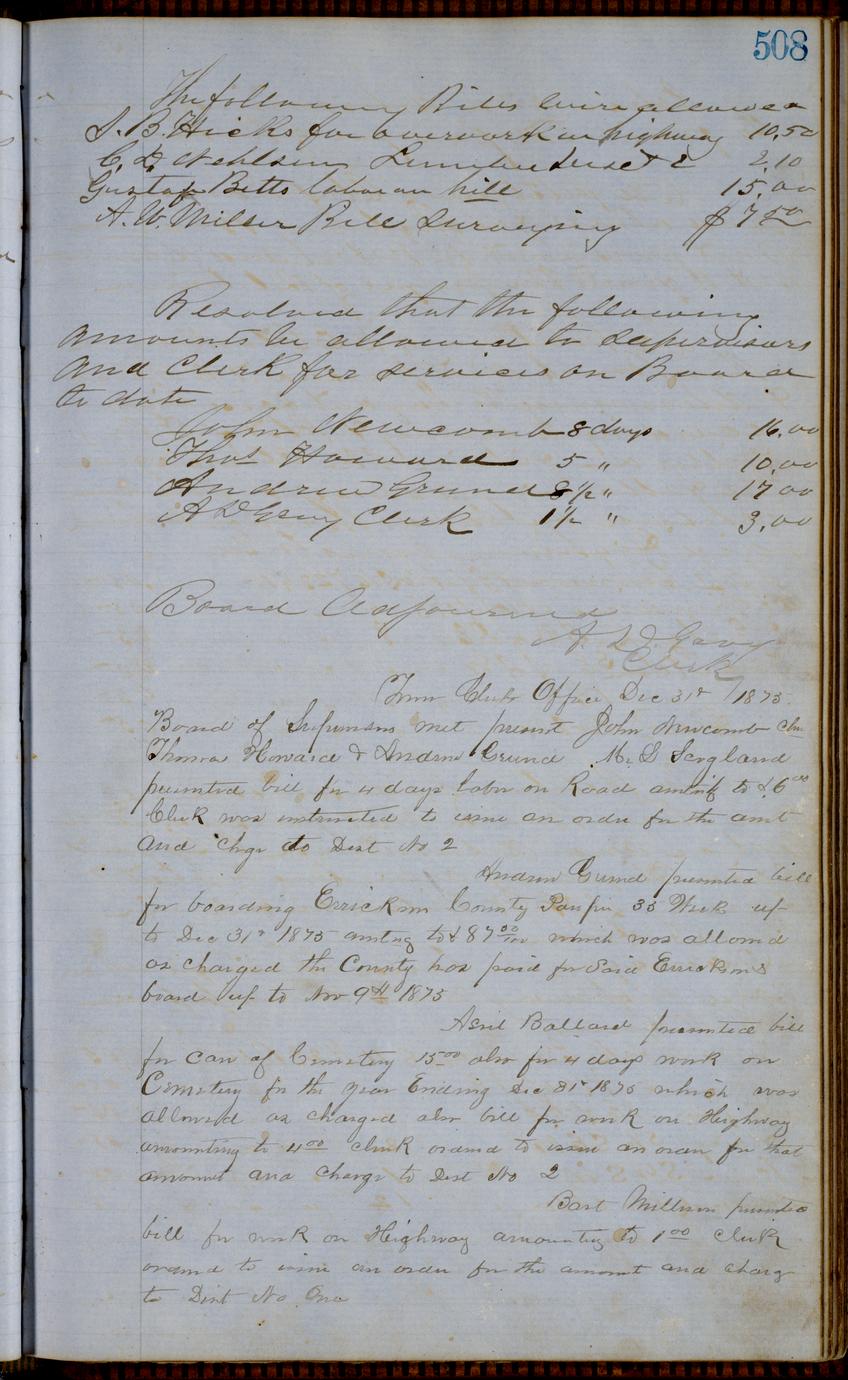 508
The following Bills were allowed
S. B. Hicks for overwork on highway 10.50
C. D. Wehlsen Lumber 2.10
Gustaf Betts labor on hill 15.00
A. W. Miller Bill Surveying $7 50
Resolved that the following
amounts be allowed to Supervisors
and Clerk for services on Board
to date
John Newcomb 8 days 16.00
Thos Howard 5 " 10.00
Andrew Grund 8 1/2 " 17 00
A D Gray Clerk 1 1/2 " 3.00
Board Adjourned
A. D. Gray
Clerk
Town Clerks Office Dec 31st / 1875.
Board of Supervisors met present John Newcomb Chn
Thomas Howard & Andrew Grund M. S
presented bill for 4 days labor on Road to $6 00
Clerk was instructed to issue an order for the amt
and chge to Dist No 2
Andrew Grund presented bill
for boarding Errickson County Pauper 35 Week up
to Dec 31st 1875 amtng to $87 00 which was allowed
as charged the County has paid for Said Erricksons
board up to Nov 9th 1875
Asil Ballard presented bill
for care of Cemetery 15 00 also for 4 days work on
Cemetery for the year Ending Dec 31st 1875 which was
allowed as charged also bill for work on Highway
amounting to 4 00 clerk ordered to issue an order for that
amount and charge to Dist No 2
Bart Millison presented
bill for work on Highway amounting to 1 00 Clerk
ordered to issue an order for the amount and charg
to Dist No One